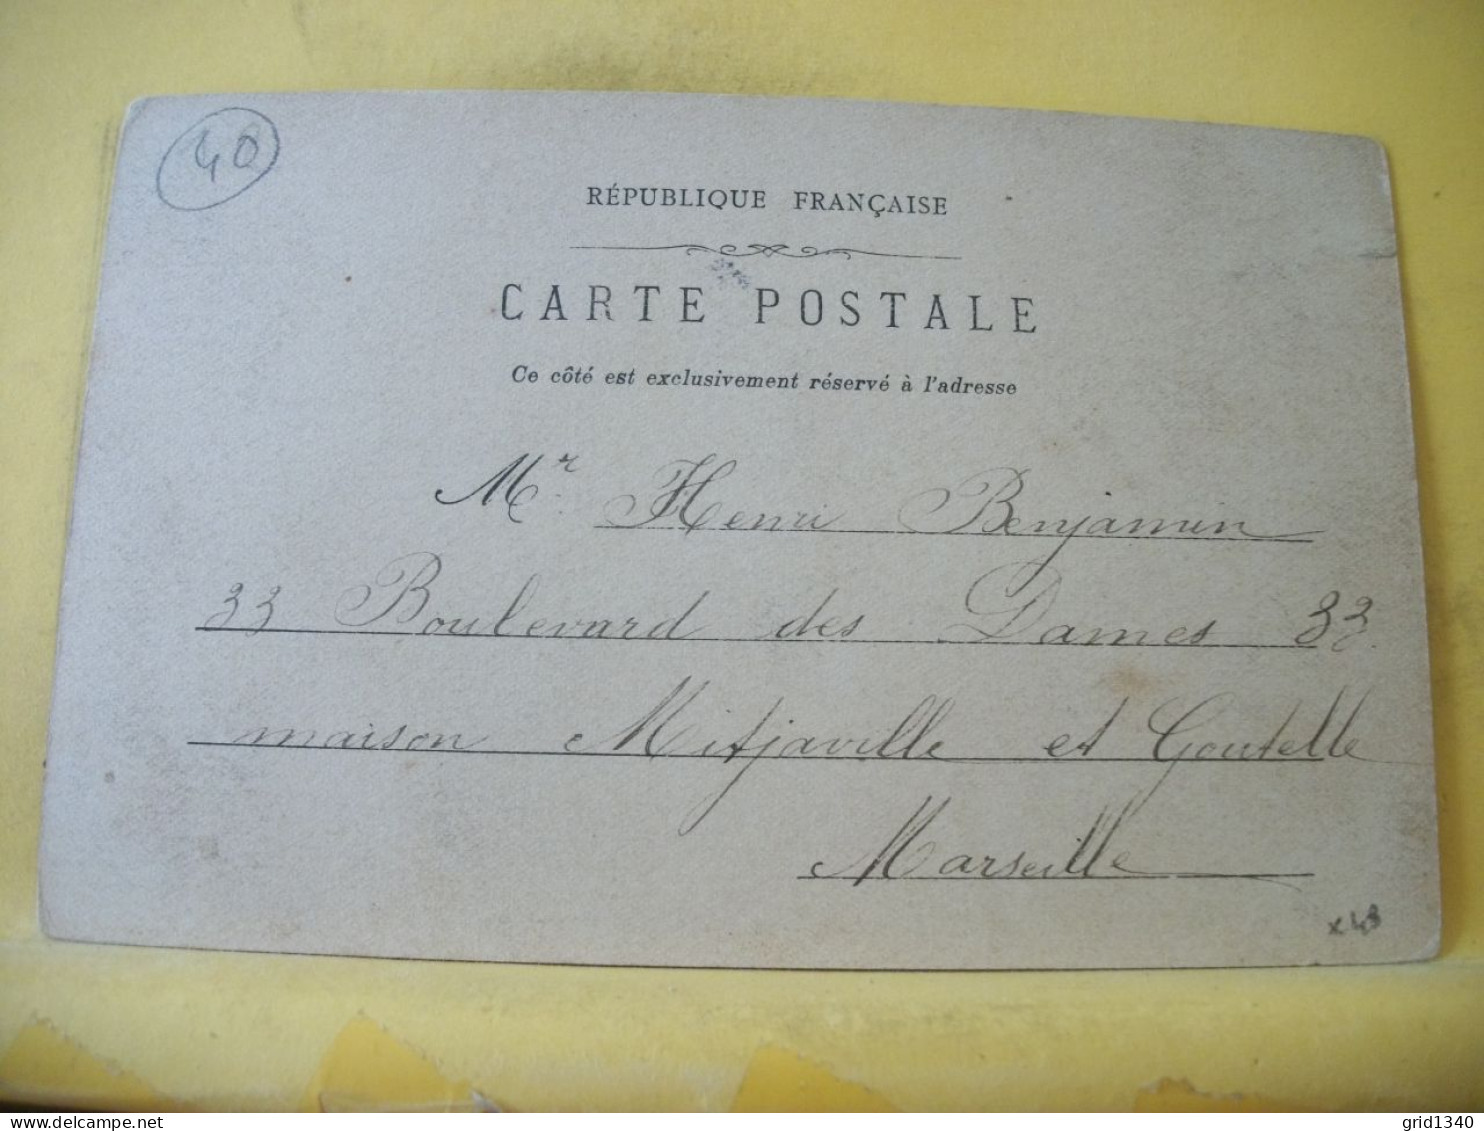 40
RÉPUBLIQUE FRANÇAISE
CARTE POSTALE
Ce côté est exclusivement réservé à l'adresse
Mr. Henri Benjamin
33 Boulevard des Dames 33.
maison Mitjaville et Goutelle
Marseille
x 43
grid1340
delcampe.net